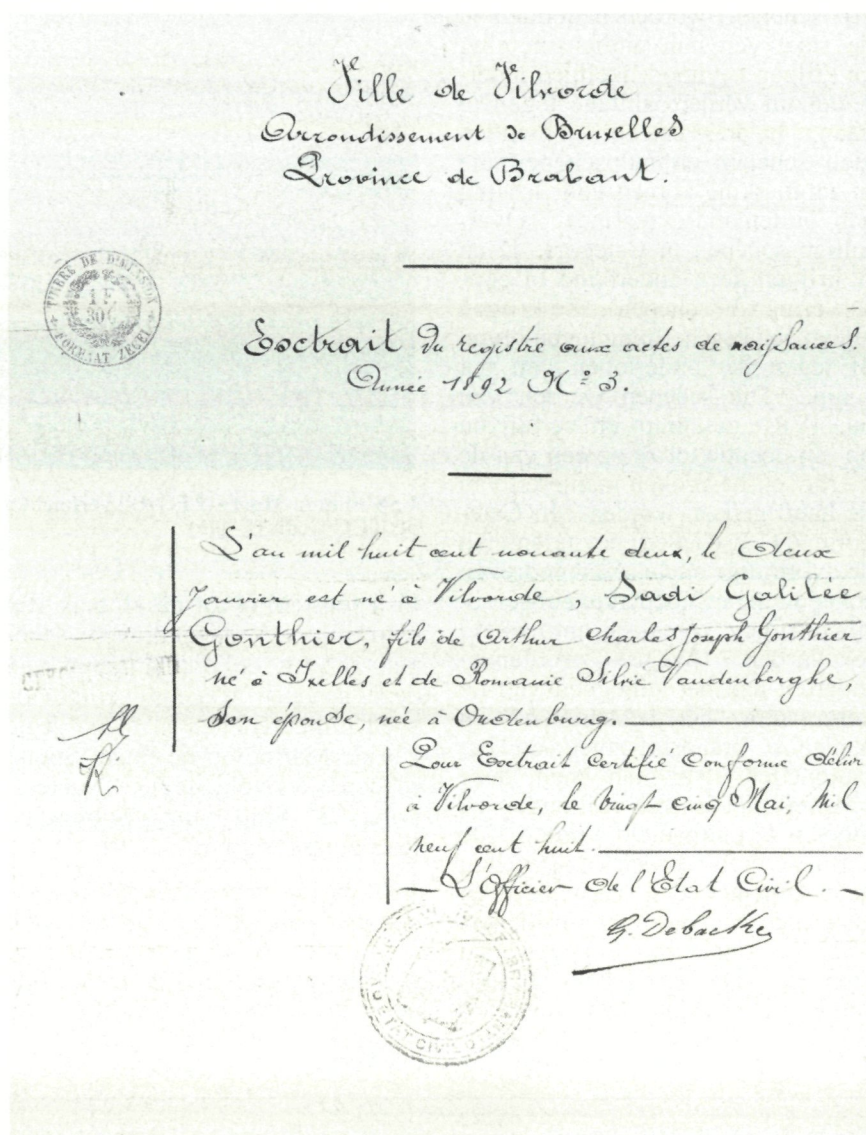 Ville de Vilvorde
Arrondissement de Bruxelles
Province de Brabant.
TIMBRE DE DIMENSION
1 F
30 C
FORMAAT ZEGEL
Extrait du registre aux actes de naissances.
Année 1892 Nº 3.
L'an mil huit cent nonante deux, le deux
Janvier est né à Vilvorde, Sadi Galilée
Gonthier, fils de Arthur Charles Joseph Gonthier
né à Ixelles et de Romanie Silvie Vandenberghe,
son épouse, née à Oudenburg.
Pour Extrait Certifié Conforme délivr
à Vilvorde, le vingt cinq Mai, Mil
neuf cent huit.
L'Officier de l'Etat Civil.
Debacker